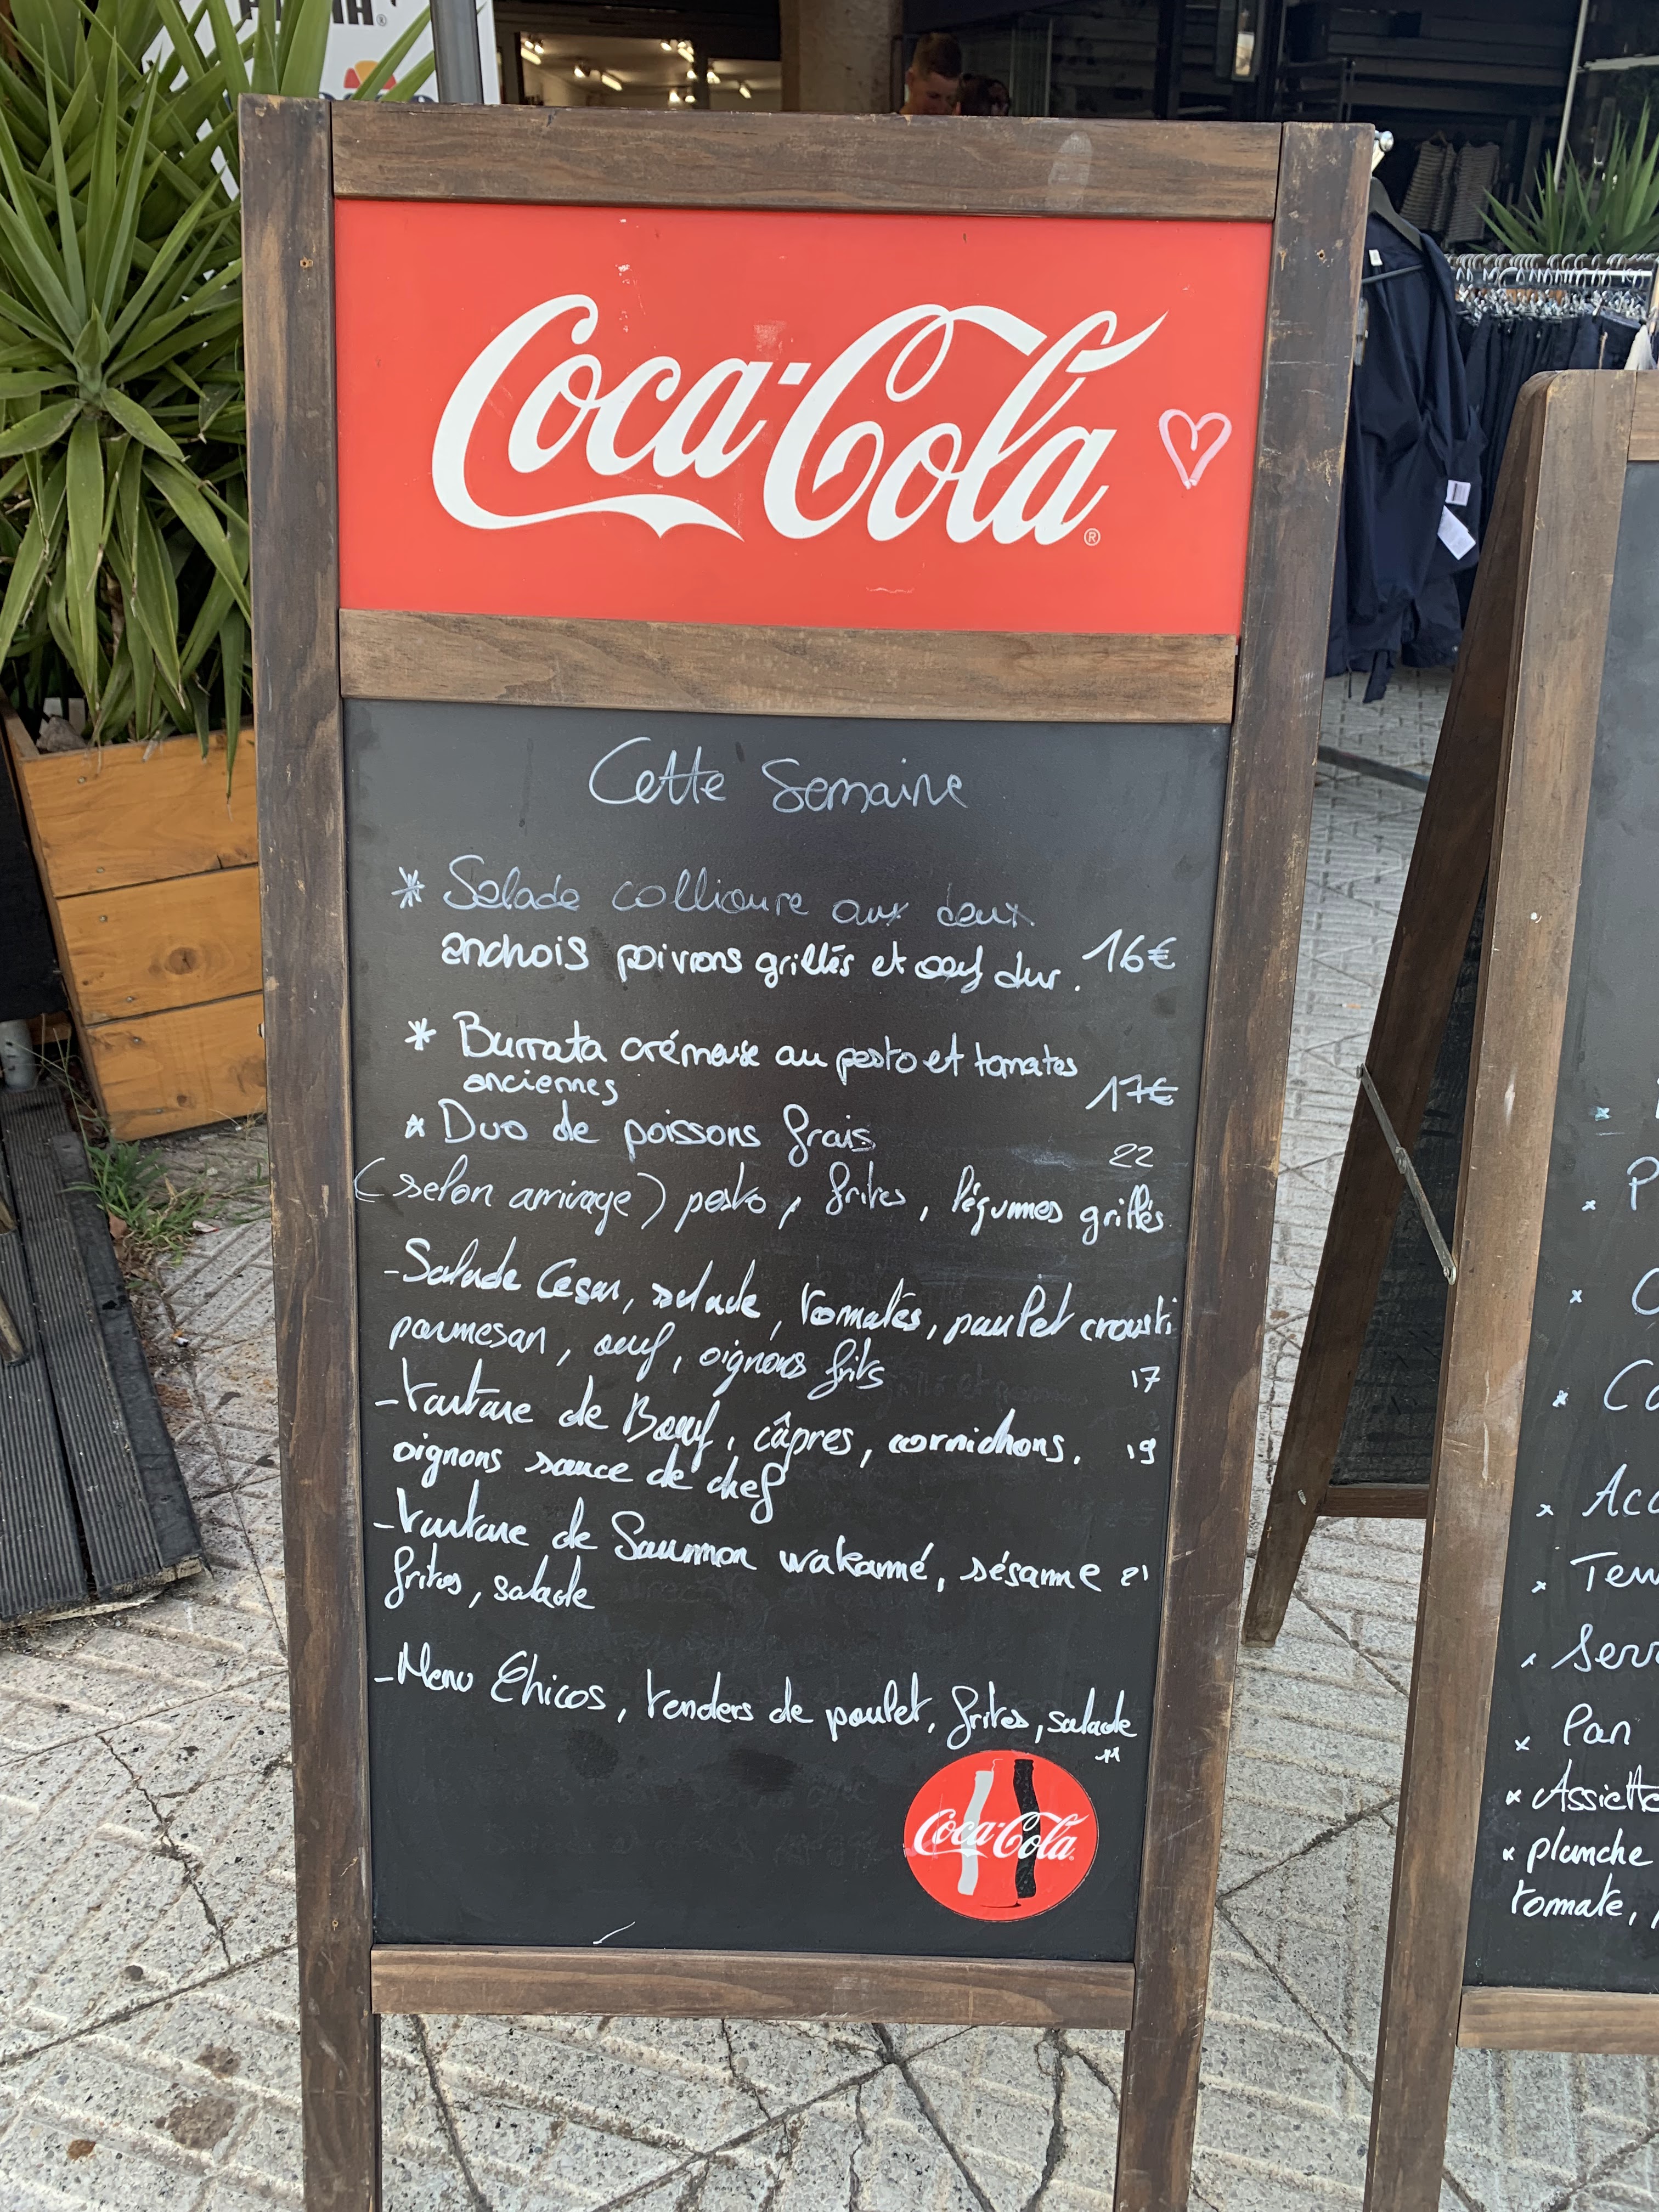 Coca-Cola
Cette Semaine
* Salade collioure aux deux
anchois poivrons grillés et oeuf dur. 16€
* Burrata crémeuse au pesto et tomates
anciennes 17€
* Duo de poissons frais 22
(selon arrivage) pesto, frites, légumes grillés
- Salade Cesar, salade, tomates, poulet crousti
parmesan, oeuf, oignons frits 17
- tartare de Boeuf, câpres, cornichons, 19
oignons sauce de chef
- tartare de Saumon wakamé, sésame 21
frites, salade
- Menu Chicos, tenders de poulet, frites, salade
11
Coca-Cola
Pan
* Assiette
* planche
tomate,